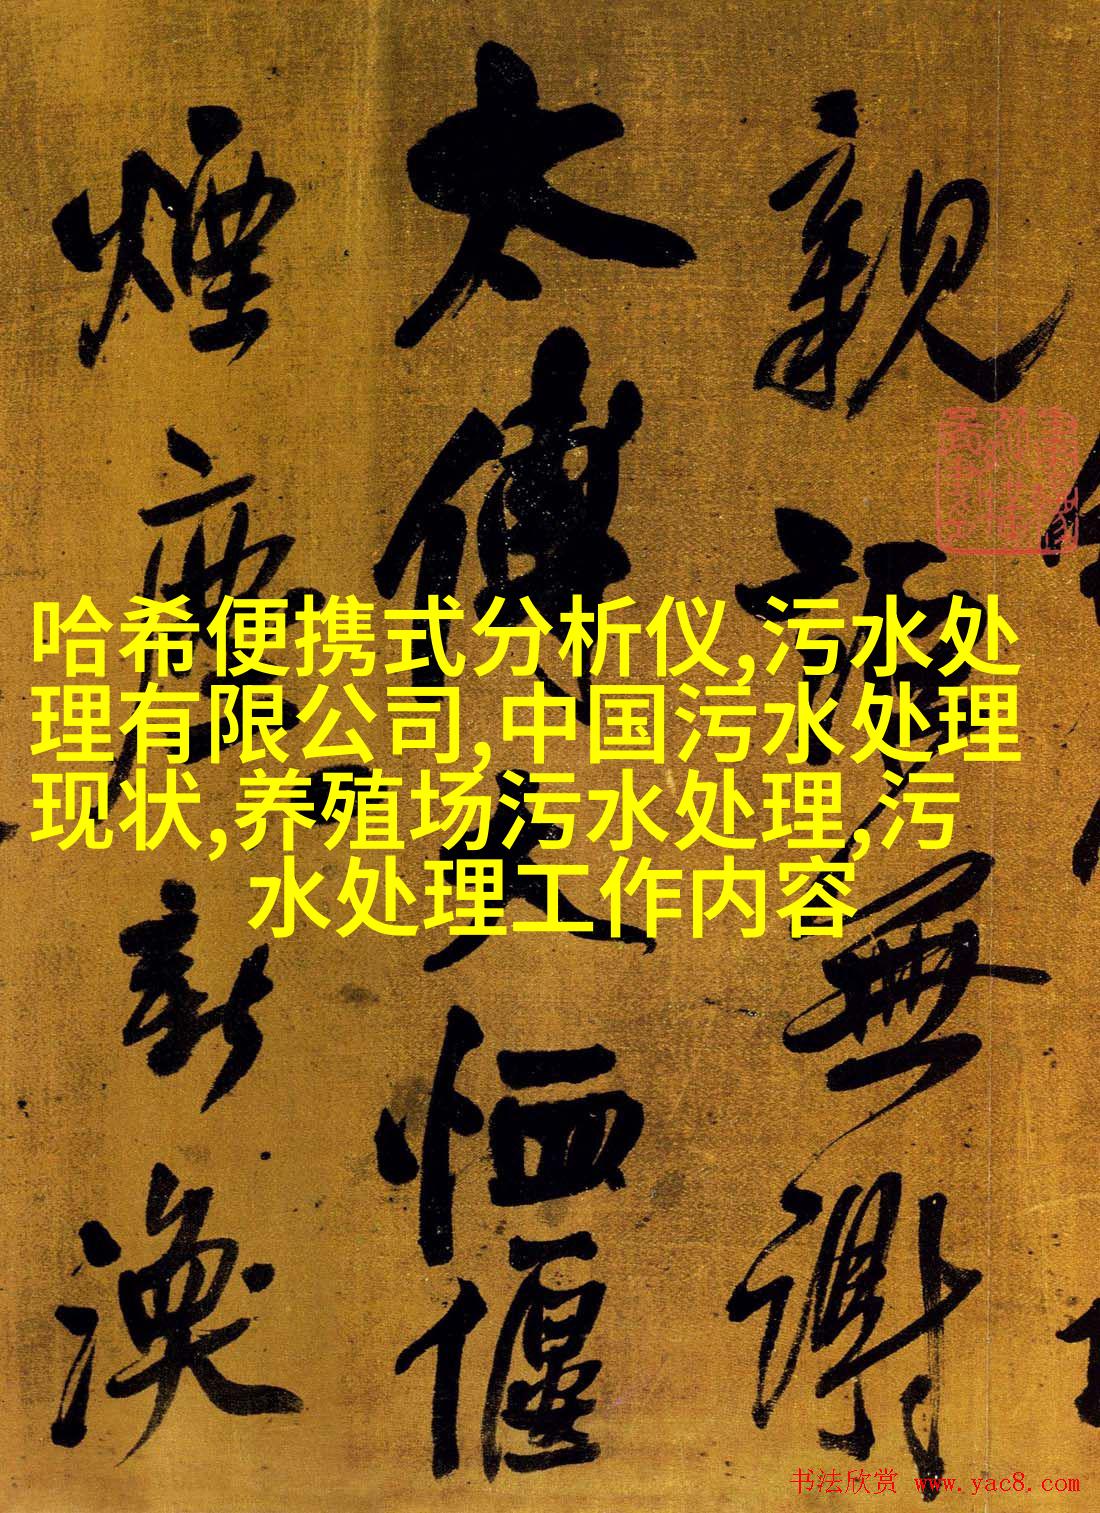 親無謝
太傅恤偃
煙新渙
哈希便携式分析仪,污水处
理有限公司,中国污水处理
现状,养殖场污水处理,污
水处理工作内容
书法欣赏 www.yac8.com